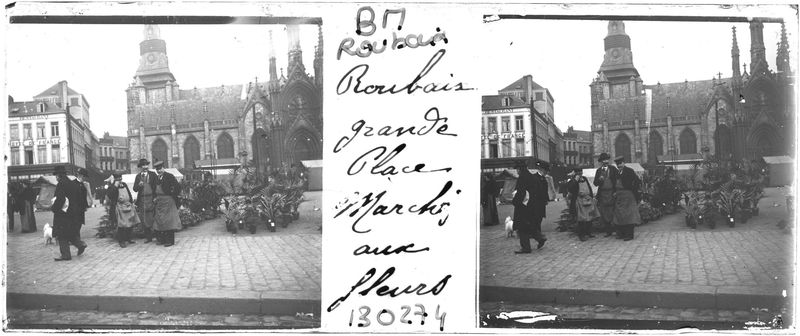 BM
Roubaix
Roubaix
grande
Place
Marché
aux
fleurs
130274